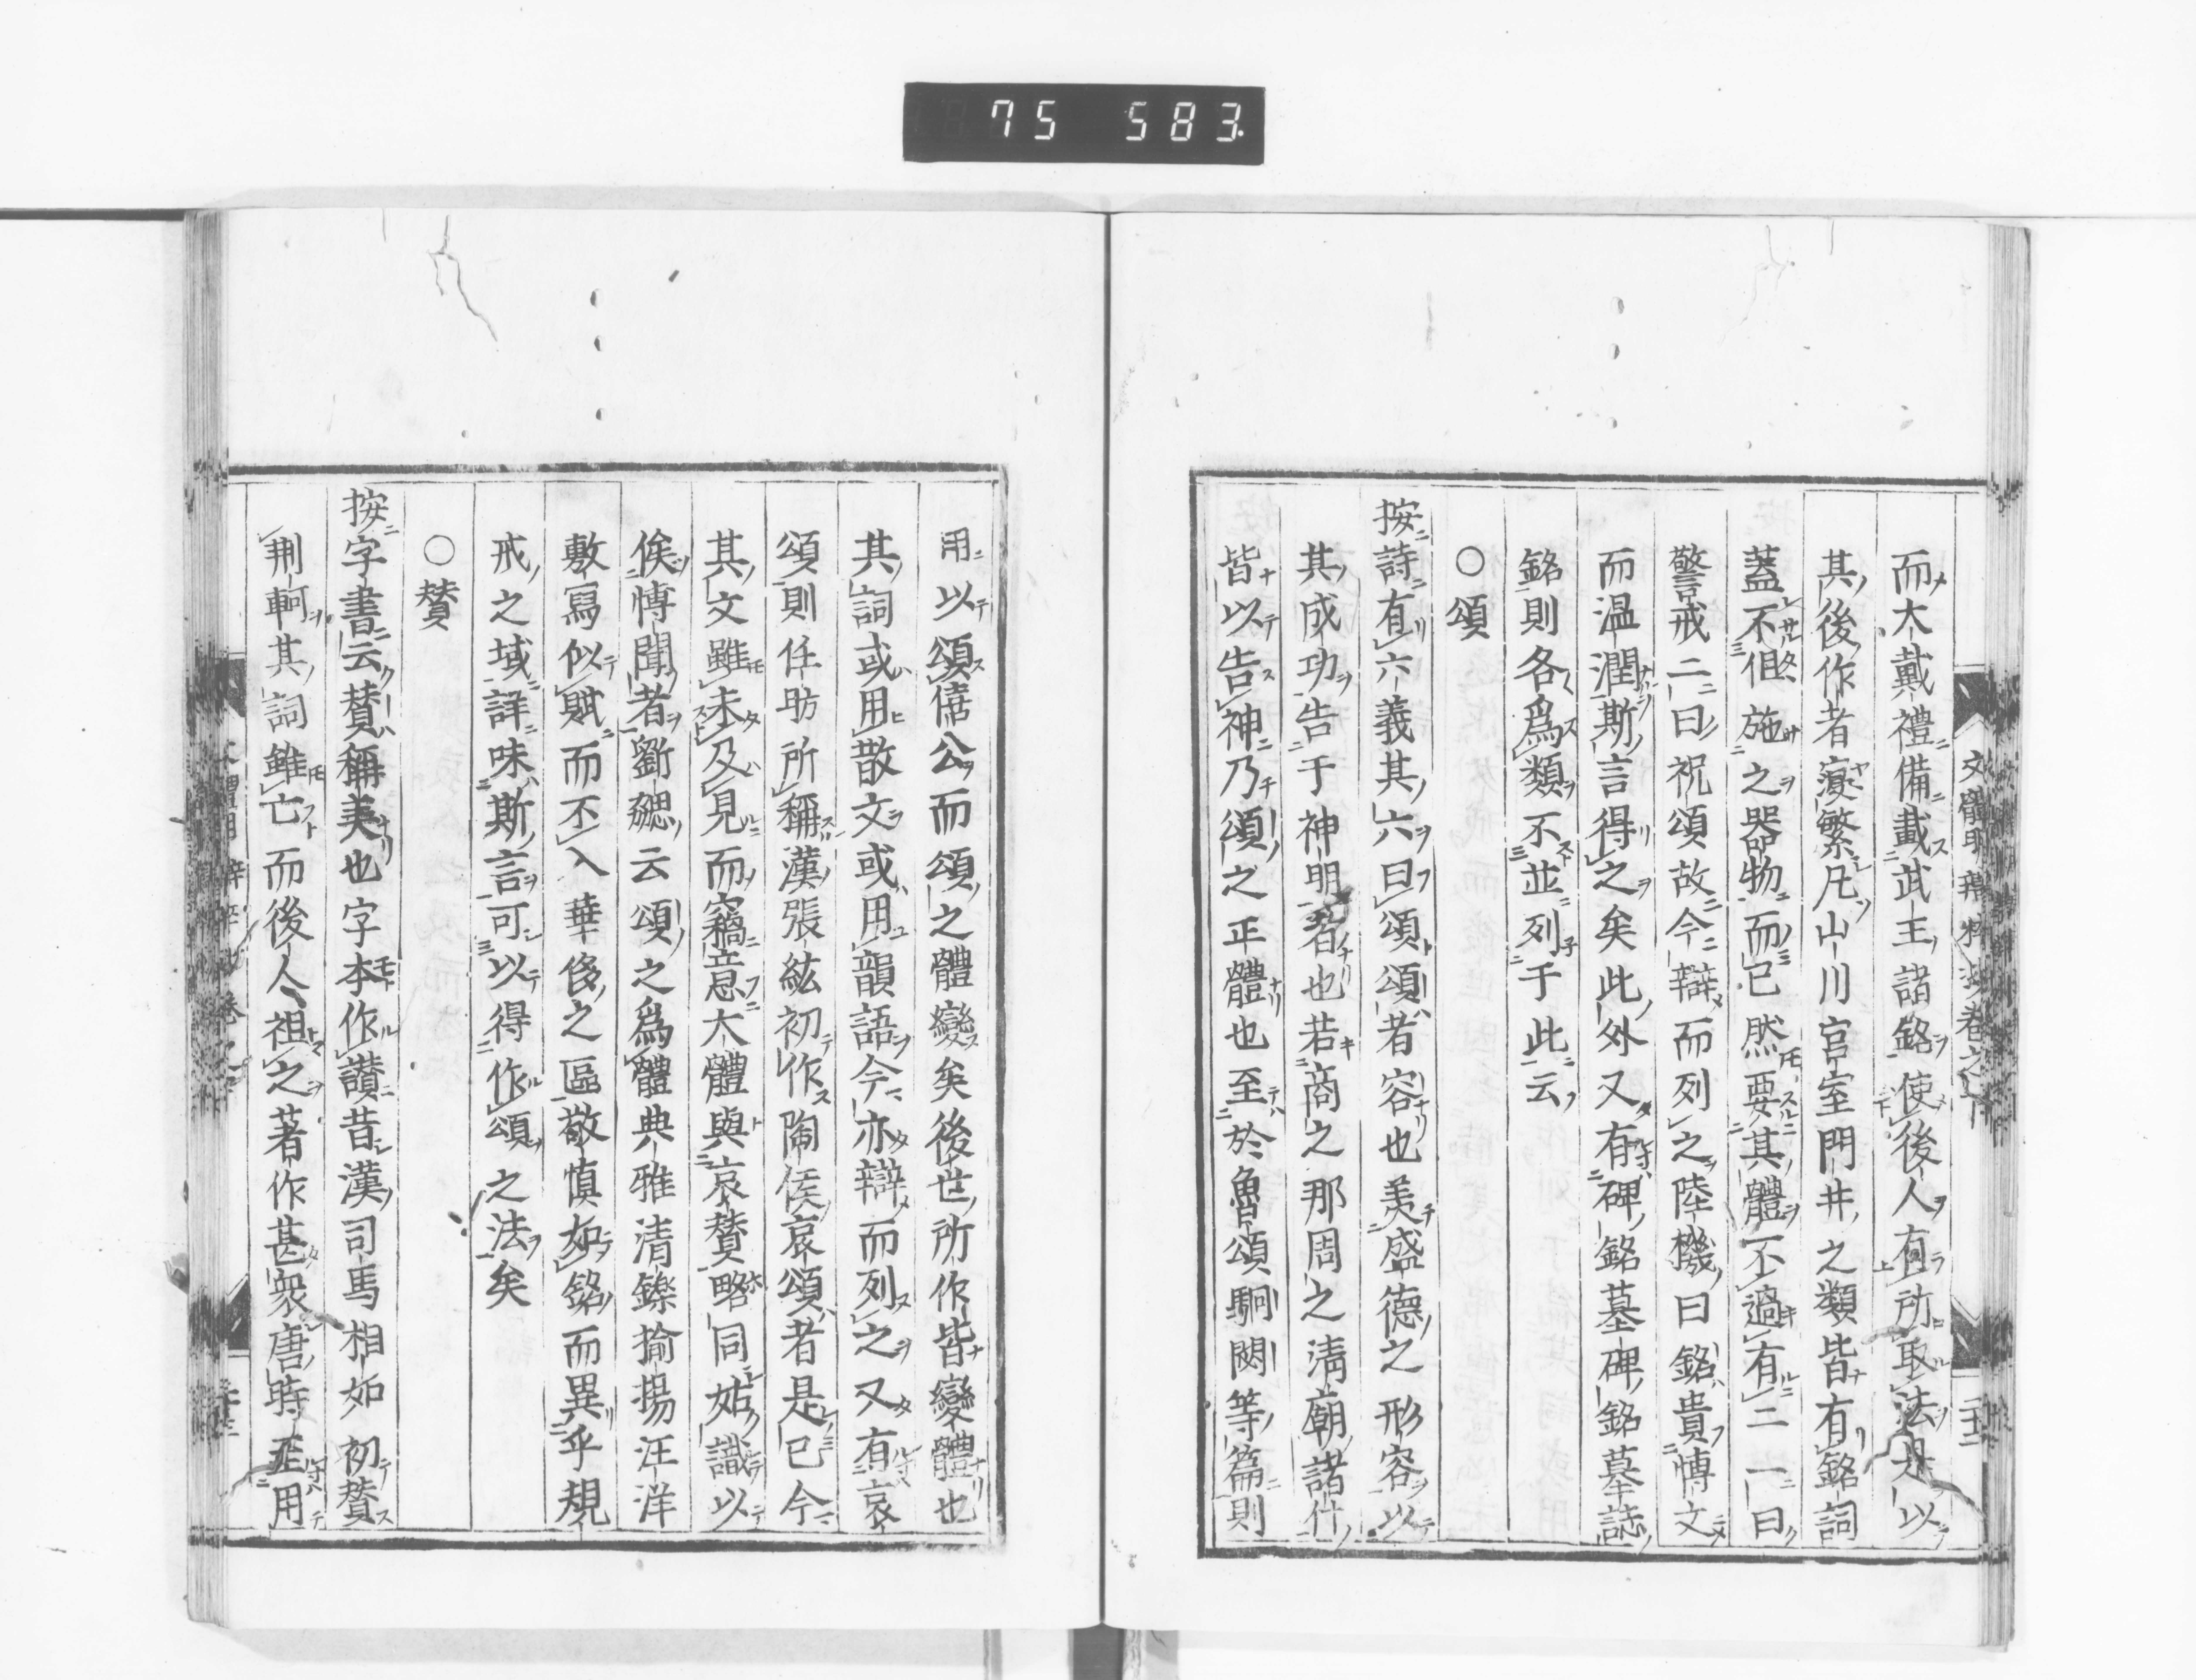 75 583.
文體明辯粹抄卷之下
而大戴禮備載武王諸銘使後人有所取法是以
其後作者寖繁凡山川宮室門井之類皆有銘詞
蓋不但施之器物而已然要其體不過有二一曰
警戒二曰祝頌故今辯而列之陸機曰銘貴愽文
而温潤斯言得之矣此外又有碑銘墓碑銘墓誌
銘則各爲類不並列于此云
○頌
按詩有六義其六曰頌頌者容也美盛德之形容以
其成功告于神明者也若商之那周之清廟諸什
皆以告神乃頌之正體也至於魯頌駉閟等篇則
用以頌僖公而頌之體變矣後世所作皆變體也
其詞或用散文或用韻語今亦辯而列之又有哀
頌則任昉所稱漢張紘初作陶侯哀頌者是已今
其文雖未及見而竊意大體與哀賛略同姑識以
俟愽聞者劉勰云頌之爲體典雅清鑠揄揚汪洋
敷寫似賦而不入華侈之區敬慎如銘而異乎規
戒之域詳味斯言可以得作頌之法矣
○賛
按字書云賛稱美也字本作讃昔漢司馬相如初賛
荆軻其詞雖亡而後人祖之著作甚衆唐時至用